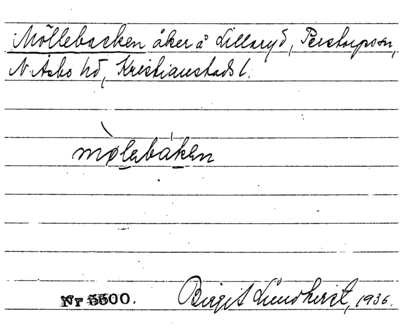 Möllebacken åker å Lillaryd, Perstorp sn,
N. Åsbo hd, Kristianstads l.
mòlebáken
Nr 5500. Birgit Lundkvist, 1936.